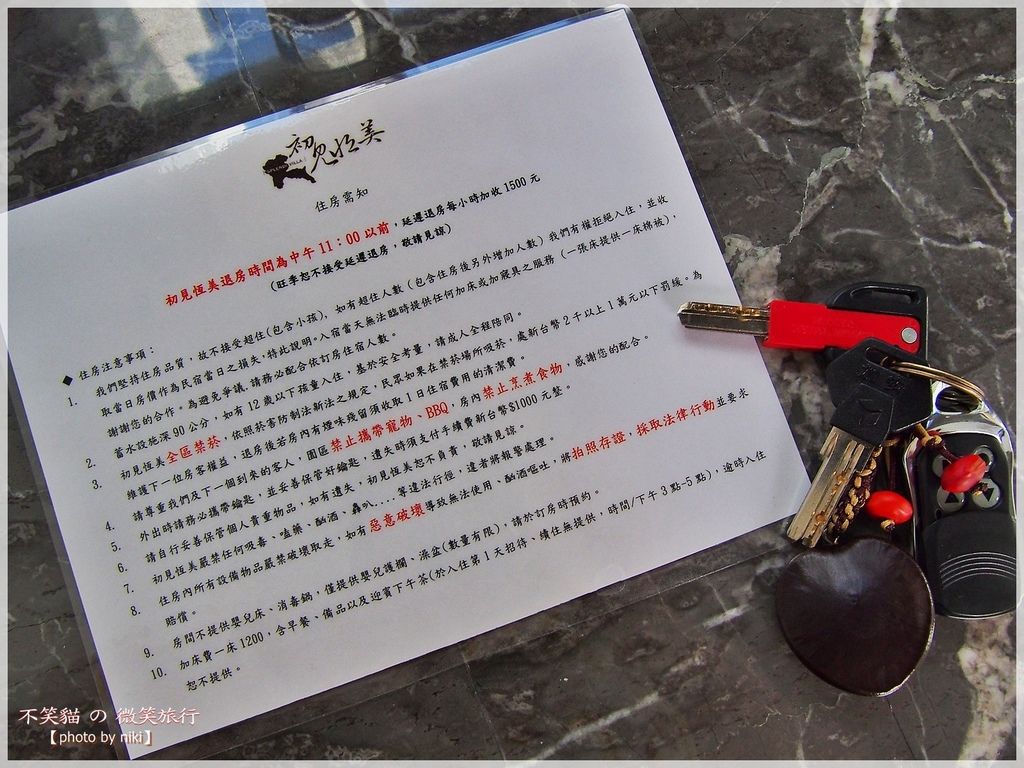 初見恆美
住房需知
初見恆美退房時間為中午11：00以前，延遲退房每小時加收1500元
(旺季恕不接受延遲退房，敬請見諒)
◆ 住房注意事項：
1. 我們堅持住房品質，故不接受超住(包含小孩)，如有超住人數(包含住房後另外增加人數)我們有權拒絕入住，並收
取當日房價作為民宿當日之損失,特此說明。入宿當天無法臨時提供任何加床或加寢具之服務(一張床提供一床棉被)，
謝謝您的合作。為避免爭議,請務必配合依訂房住宿人數。
2. 蓄水設施深90公分，如有12歲以下孩童入住，基於安全考量，請成人全程陪同。
3. 初見恆美全區禁菸，依照菸害防制法新法之規定，民眾如果在禁菸場所吸菸，處新台幣2千以上1萬元以下罰緩。為
維護下一位房客權益，退房後若房內有煙味殘留須收取1日住宿費用的清潔費。
4. 請尊重我們及下一個到來的客人，園區禁止攜帶寵物、BBQ，房內禁止烹煮食物，感謝您的配合。
5. 外出時請務必攜帶鑰匙，並妥善保管好鑰匙，遺失時須支付手續費新台幣$1000元整。
6. 請自行妥善保管個人貴重物品，如有遺失，初見恆美恕不負責，敬請見諒。
7. 初見恆美嚴禁任何吸毒、嗑藥、酗酒、轟趴....等違法行徑，違者將報警處理。
8. 住房內所有設備物品嚴禁破壞取走，如有惡意破壞導致無法使用、酗酒嘔吐，將拍照存證，採取法律行動並要求
賠償。
9. 房間不提供嬰兒床、消毒鍋，僅提供嬰兒護欄、澡盆(數量有限)，請於訂房時預約。
10. 加床費一床1200，含早餐、備品以及迎賓下午茶(於入住第1天招待、續住無提供，時間/下午3點-5點)，逾時入住
恕不提供。
不笑貓 の 微笑旅行
【photo by niki】